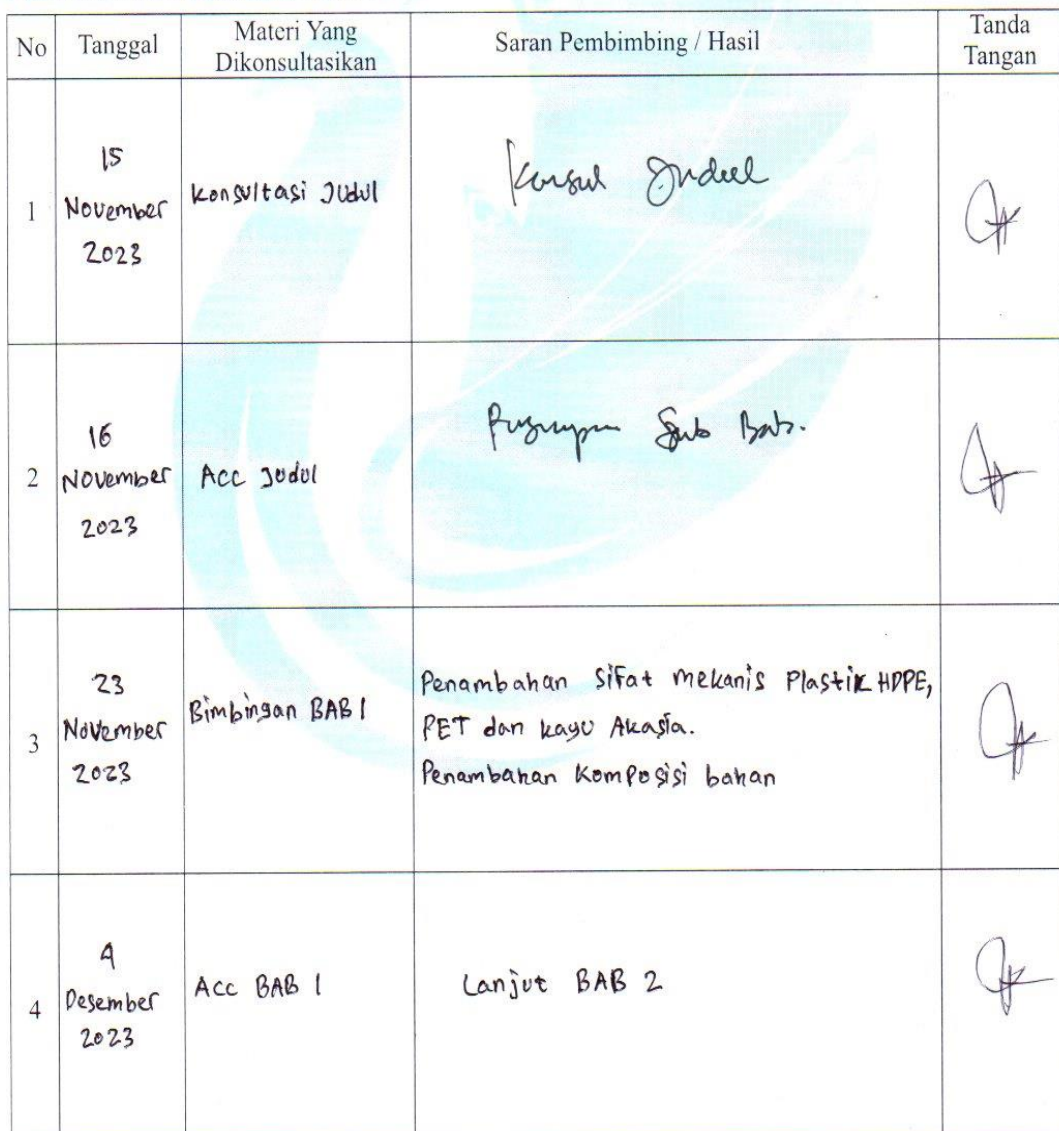 No
Tanggal
Materi Yang
Dikonsultasikan
Saran Pembimbing / Hasil
Tanda
Tangan
1
15
November
2023
Konsultasi Judul
Konsul Judul
2
16
November
2023
Acc Judul
Sub Bab.
3
23
November
2023
Bimbingan BAB 1
Penambahan Sifat mekanis Plastik HDPE,
PET dan kayu Akasia.
Penambahan Komposisi bahan
4
4
Desember
2023
Acc BAB 1
Lanjut BAB 2